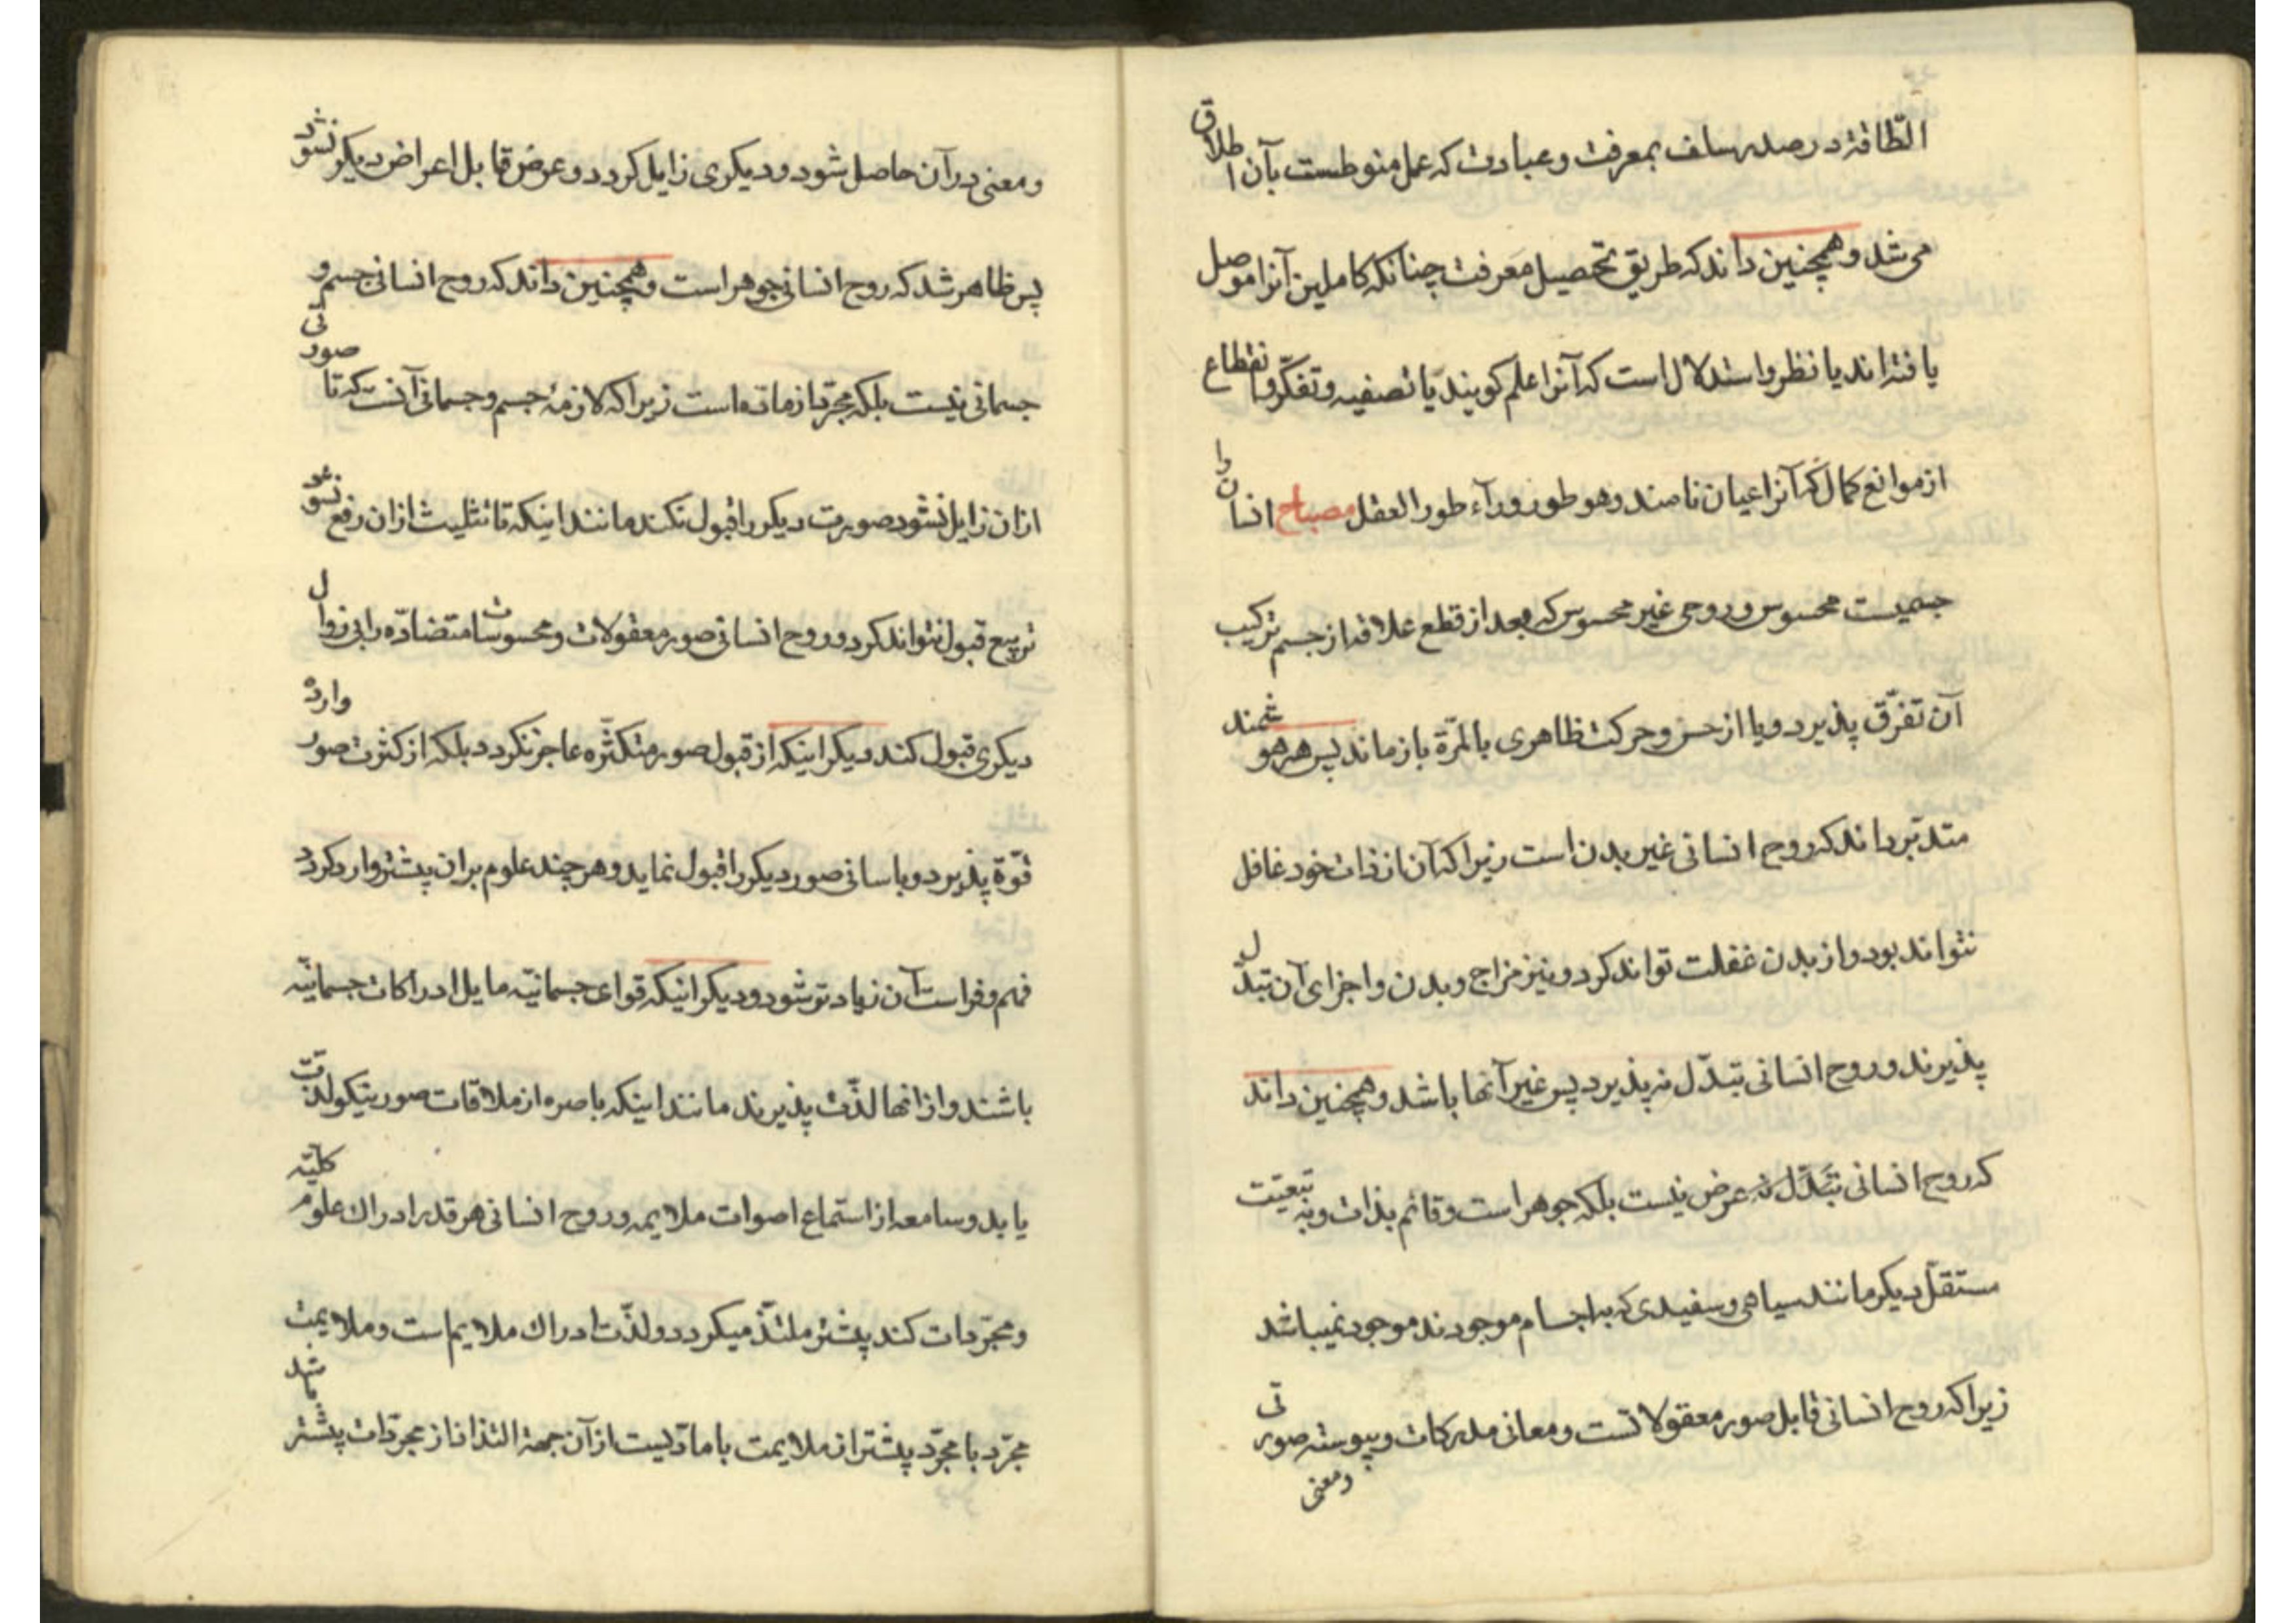 الطّاقة در صدر سلف بمعرفت و عبادت که عمل منوطست بآن اطلاق
می شد و همچنین داند که طریق تحصیل معرفت چنانکه کاملین آنرا موصل
یافته اند یا نظر و استدلال است که آنرا علم کویند یا تصفیه و تفکّر و انقطاع
از موانع کمال که آنرا عیان نامند و هو طور ورآء طور العقل مصباح انسان را
جسمیست محسوس و روحی غیر محسوس که بعد از قطع علاقه از جسم ترکیب
آن تفرّق پذیرد و یا از حس و حرکت ظاهری بالمرّة باز ماند پس هر هوشمند
متدبّر داند که روح انسانی غیر بدن است زیرا که آن از ذات خود غافل
نتواند بود و از بدن غفلت تواند کرد و نیز مزاج و بدن و اجزای آن تبدّل
پذیرند و روح انسانی تبدّل نپذیرد پس غیر آنها باشد و همچنین داند
که روح انسانی عرض نیست بلکه جوهر است و قائم بذات و به تبعیّت
مستقلّ دیکر مانند سیاهی و سفیدی که به اجسام موجودند موجود نمیباشد
زیرا که روح انسانی قابل صور معقولاتست و معانی مدرکات و پیوسته صورتی
و معنی
و معنی در آن حاصل شود و دیکری زایل کردد و عرض قابل اعراض دیکر نشود
پس ظاهر شد که روح انسانی جوهر است و همچنین داند که روح انسانی جسم و
جسمانی نیست بلکه مجرّد از ماده است زیرا که لازمهٔ جسم و جسمانی آنست که تا صورتی
از ان زایل نشود صورت دیکر را قبول نکند مانند اینکه تا تثلیث از ان رفع نشود
تربیع قبول نتواند کرد و روح انسانی صور معقولات و محسوسات متضادّه را بی زوال
دیکری قبول کند دیکر اینکه از قبول صور متکثّره عاجز نکردد بلکه از کثرت صور وارده
قوّة پذیرد و باسانی صور دیکر را قبول نماید و هر چند علوم بر ان پیشتر وارد کردد
فهم و فراست آن زیادتر شود و دیکر اینکه قواى جسمانیّه مایل ادراکات جسمانیّه
باشند و از انها لذّت پذیرند مانند اینکه باصره از ملاقات صور نیکو لذّت
یابد و سامعه از استماع اصوات ملایمه و روح انسانی هر قدر ادراک علوم کلیّه
و مجرّدات کند پیشتر ملتذّ میکردد و لذّت ادراک ملایم است و ملایمت
مجرّد با مجرّد پیشتر از ملایمت با مادّیست از آن جهة التذاذ از مجرّدات پیشتر باشد